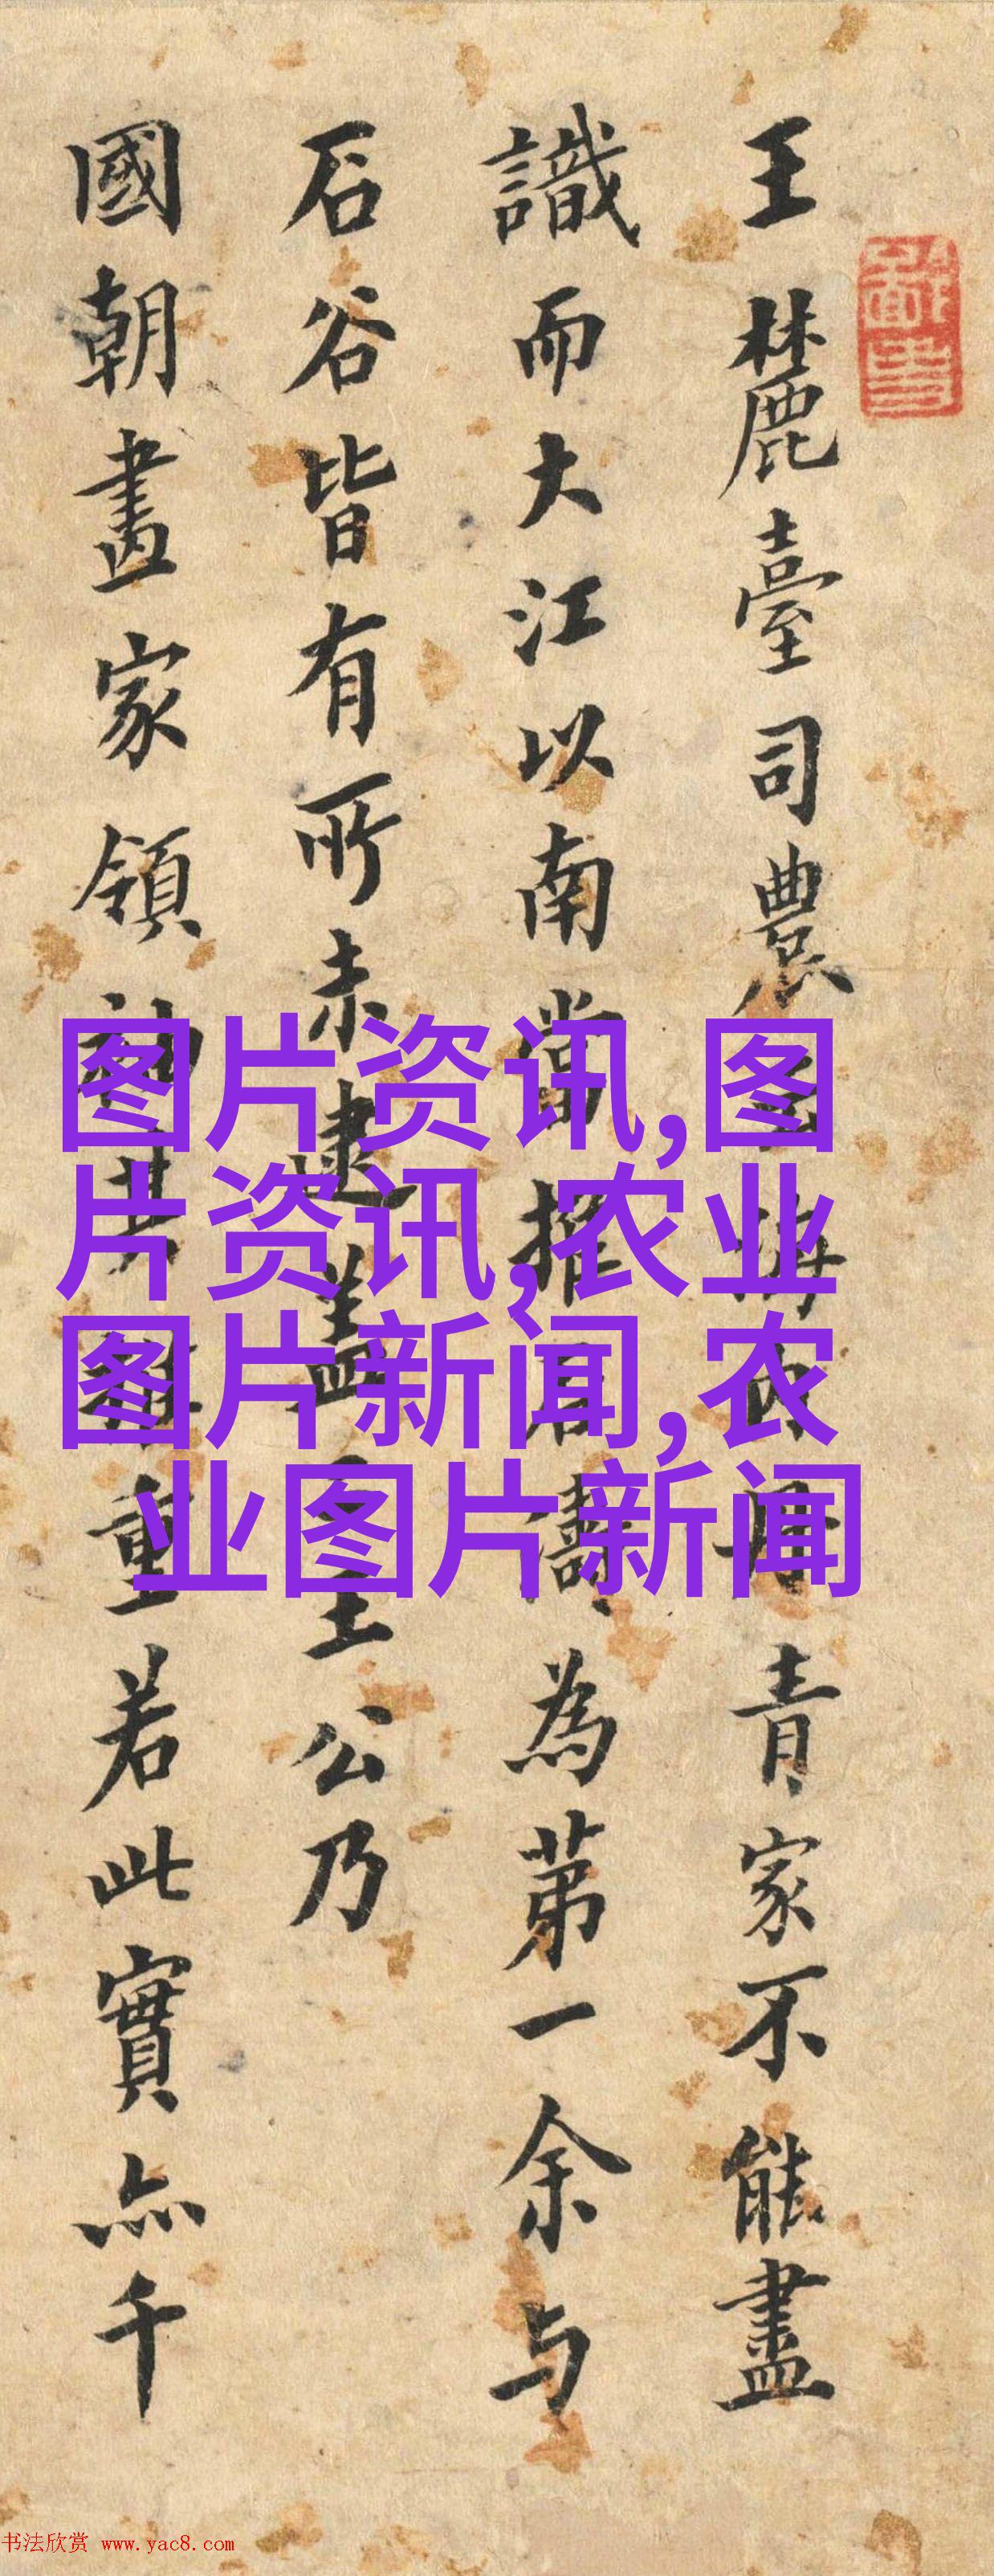 王麓臺司農青家不能盡
識而大江以南當推君濤為第一余与
石谷皆有所未逮蓋公乃
國朝畫家領重若此實亦千
图片资讯,图
片资讯,农业
图片新闻,农
业图片新闻
书法欣赏 www.yac8.com